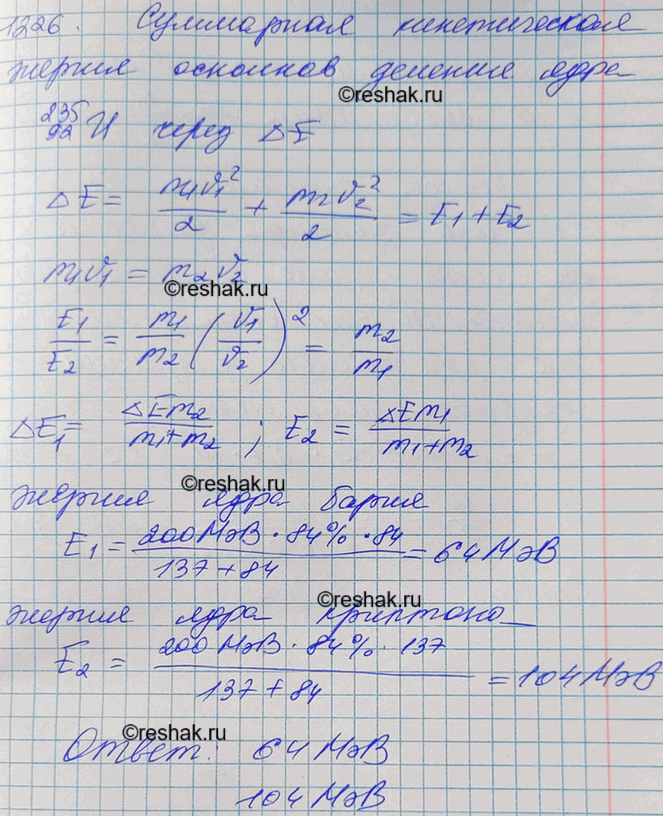 1226. Суммарная кинетическая
энергия осколков деления ядра
©reshak.ru
²³⁵₉₂U через ΔE
ΔE = m₁v₁²/2 + m₂v₂²/2 = E₁ + E₂
m₁v₁ = m₂v₂
©reshak.ru
E₁/E₂ = m₁/m₂ (v₁/v₂)² = m₂/m₁
ΔE₁ = ΔEm₂/(m₁+m₂) ; E₂ = ΔEm₁/(m₁+m₂)
©reshak.ru
энергия ядра бария
E₁ = 200 МэВ · 84% · 84/(137 + 84) = 64 МэВ
©reshak.ru
энергия ядра криптона
E₂ = 200 МэВ · 84% · 137/(137 + 84) = 104 МэВ
©reshak.ru
Ответ: 64 МэВ
104 МэВ